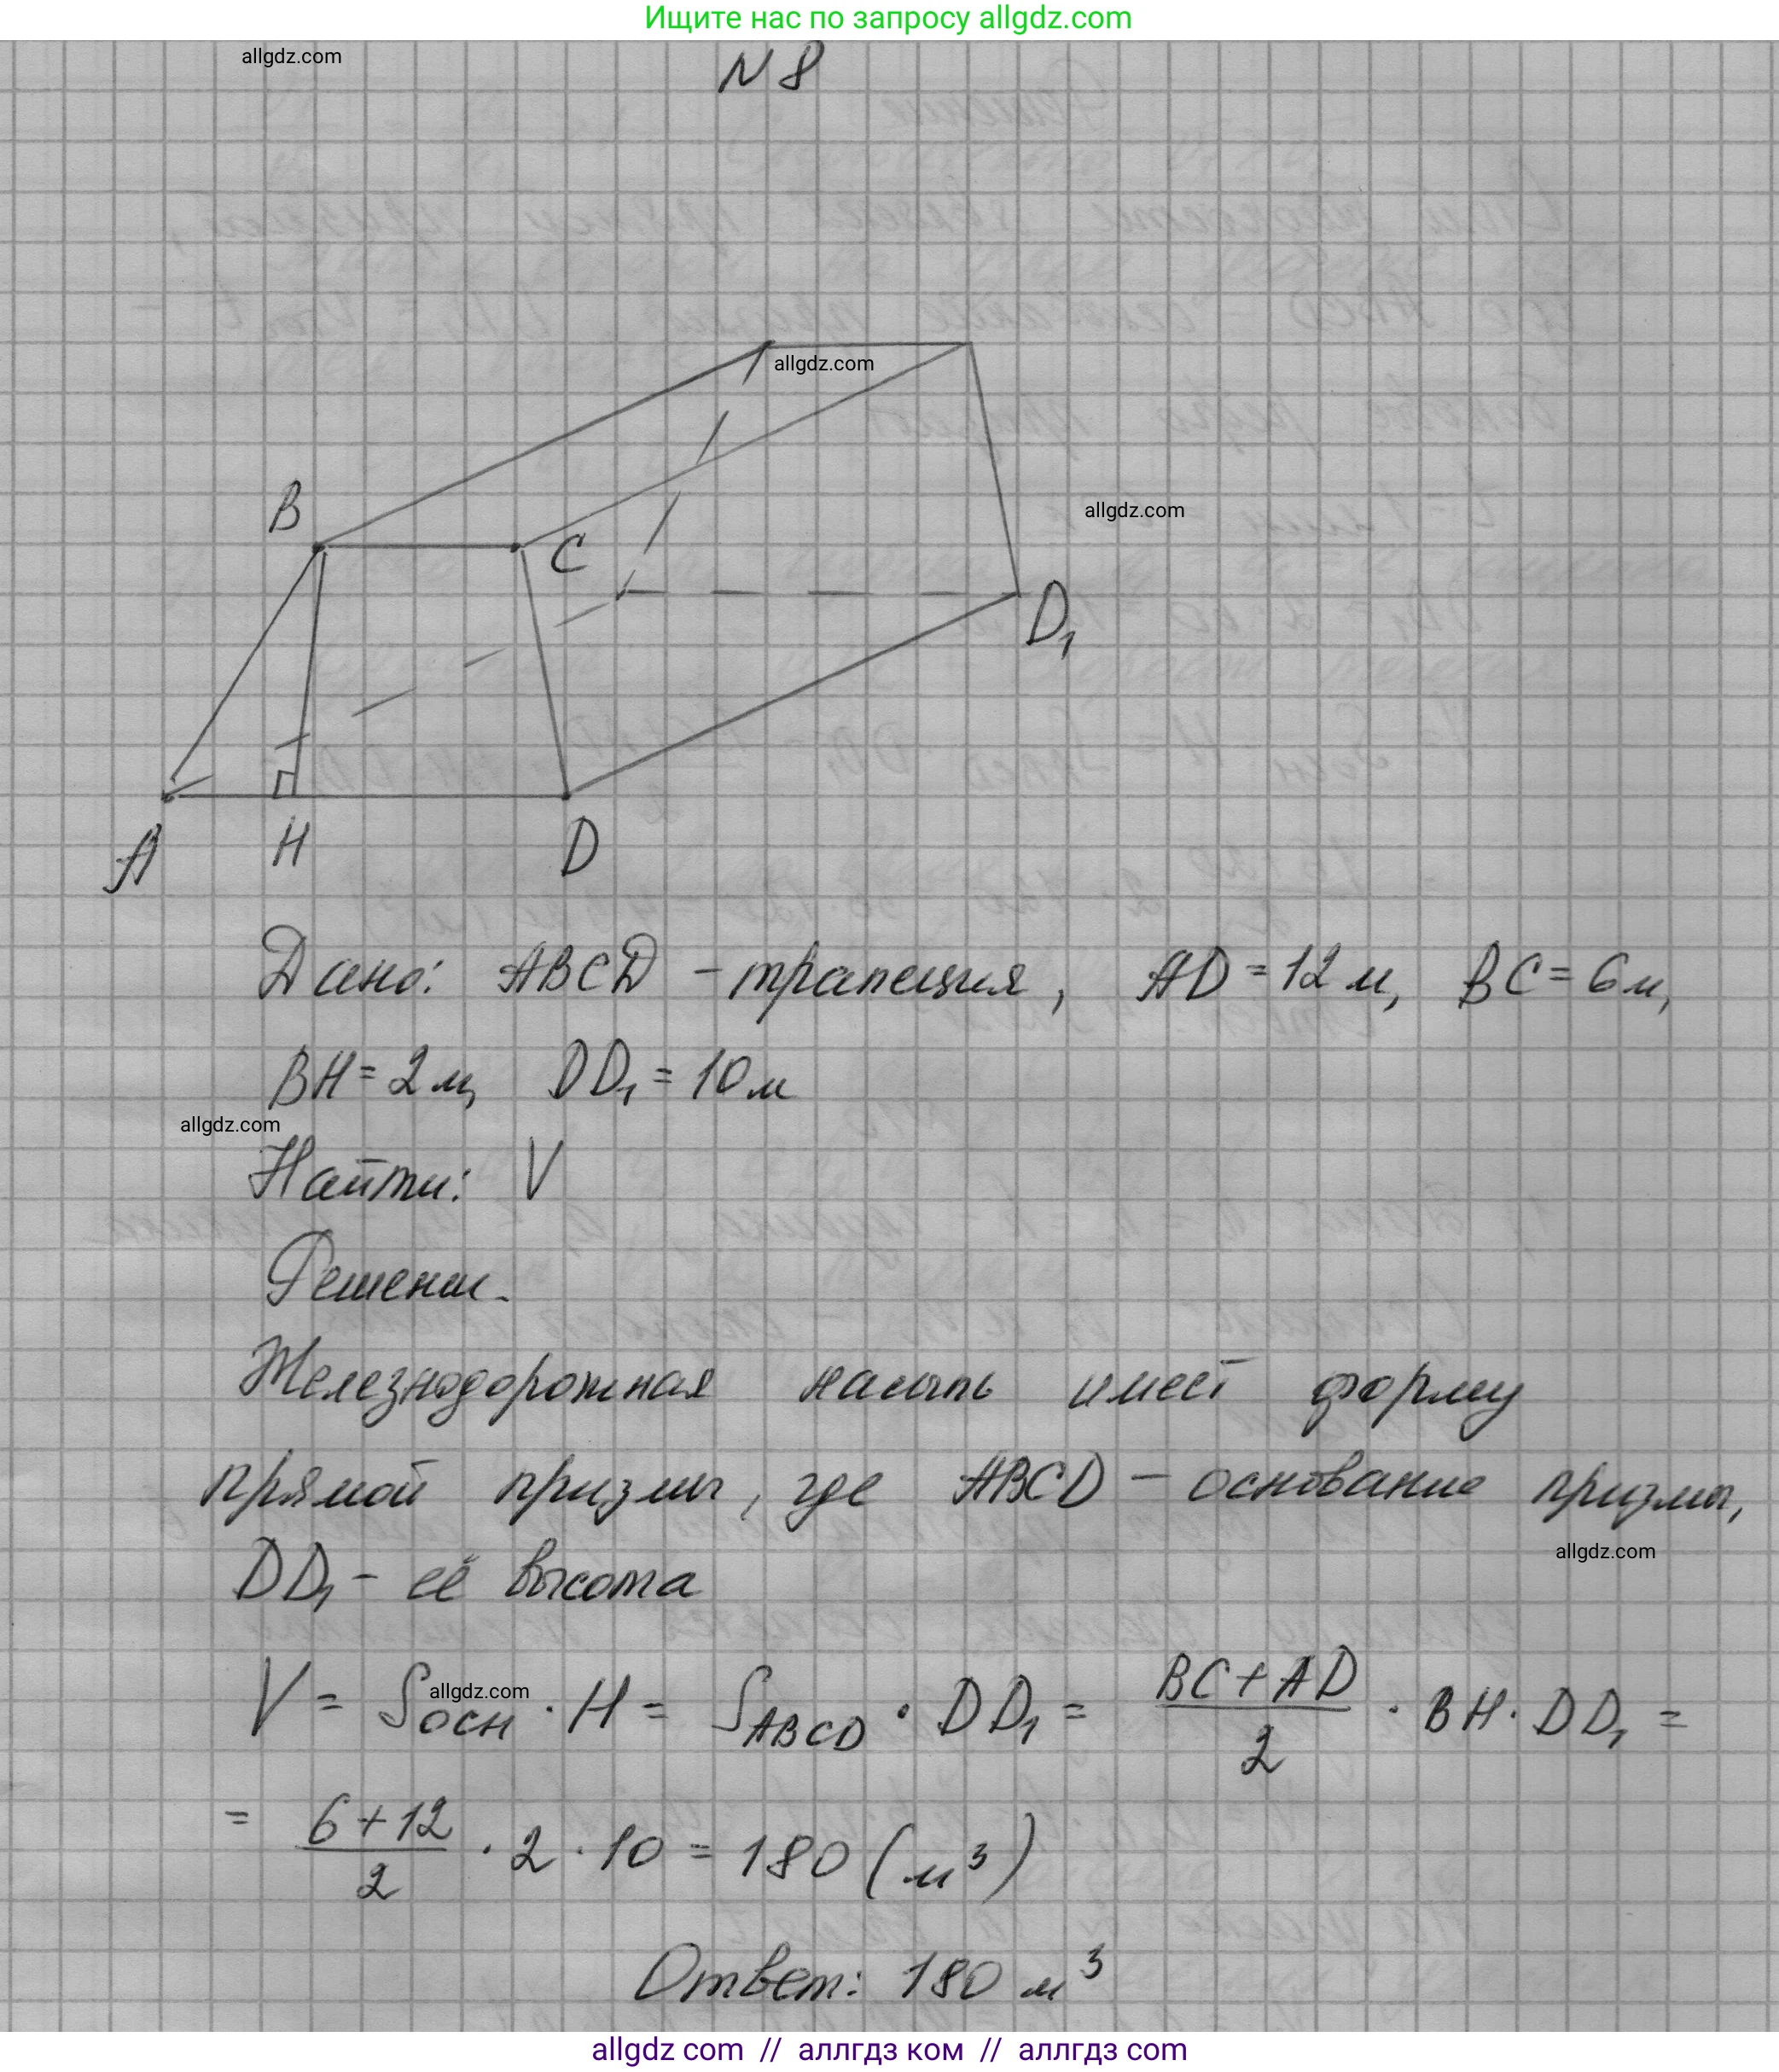 Ищите нас по запросу allgdz.com
allgdz.com
N 8
allgdz.com
allgdz.com
B
C
D₁
A
H
D
Дано: ABCD – трапеция, AD = 12 м, BC = 6 м,
BH = 2 м, DD₁ = 10 м
allgdz.com
Найти: V
Решение.
Железнодорожная насыпь имеет форму
прямой призмы, где ABCD – основание призмы,
allgdz.com
DD₁ – её высота
V = S_осн · H = S_ABCD · DD₁ = (BC + AD)/2 · BH · DD₁ =
allgdz.com
= (6 + 12)/2 · 2 · 10 = 180 (м³)
Ответ: 180 м³
allgdz com // аллгдз ком // аллгдз com